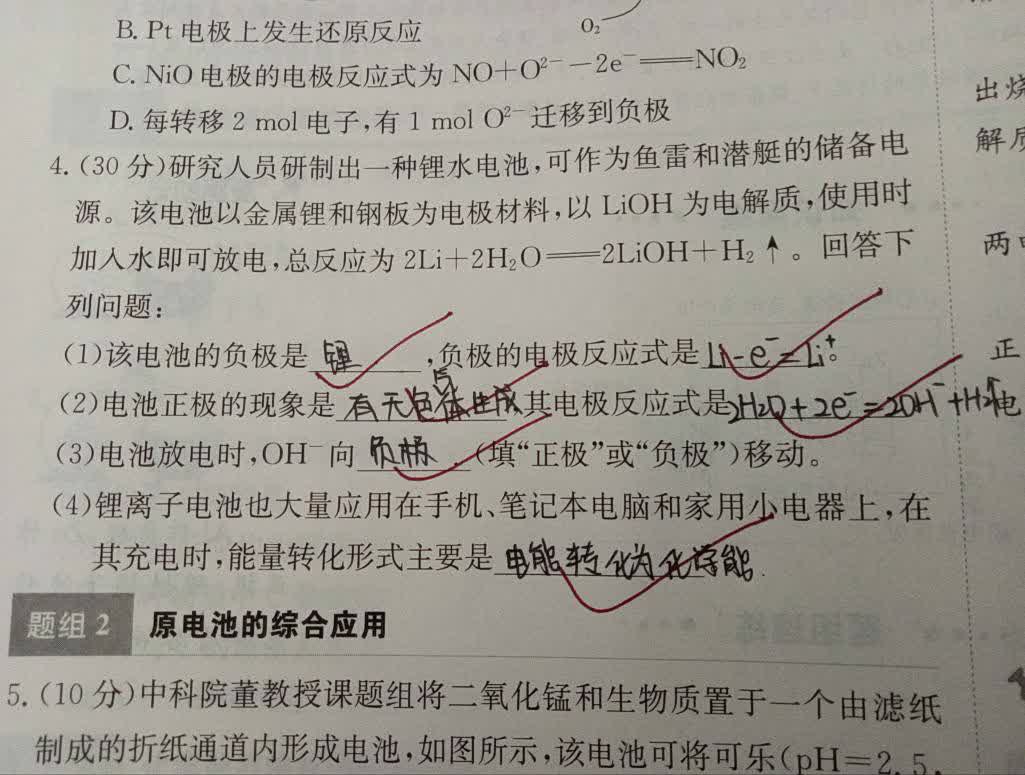 B. Pt 电极上发生还原反应
O₂
C. NiO 电极的电极反应式为 NO+O²⁻−2e⁻══NO₂
D. 每转移 2 mol 电子,有 1 mol O²⁻ 迁移到负极
出烧
解质
4. (30 分)研究人员研制出一种锂水电池,可作为鱼雷和潜艇的储备电
源。该电池以金属锂和钢板为电极材料,以 LiOH 为电解质,使用时
加入水即可放电,总反应为 2Li+2H₂O══2LiOH+H₂↑。回答下
列问题:
(1)该电池的负极是 锂 ,负极的电极反应式是 Li-e⁻=Li⁺。
(2)电池正极的现象是 有无色气体生成 其电极反应式是 2H₂O+2e⁻=2OH⁻+H₂↑
(3)电池放电时,OH⁻ 向 负极 .(填“正极”或“负极”)移动。
(4)锂离子电池也大量应用在手机、笔记本电脑和家用小电器上,在
其充电时,能量转化形式主要是 电能转化为化学能.
题组 2 原电池的综合应用
5. (10 分)中科院董教授课题组将二氧化锰和生物质置于一个由滤纸
制成的折纸通道内形成电池,如图所示,该电池可将可乐(pH=2.5,
正
电